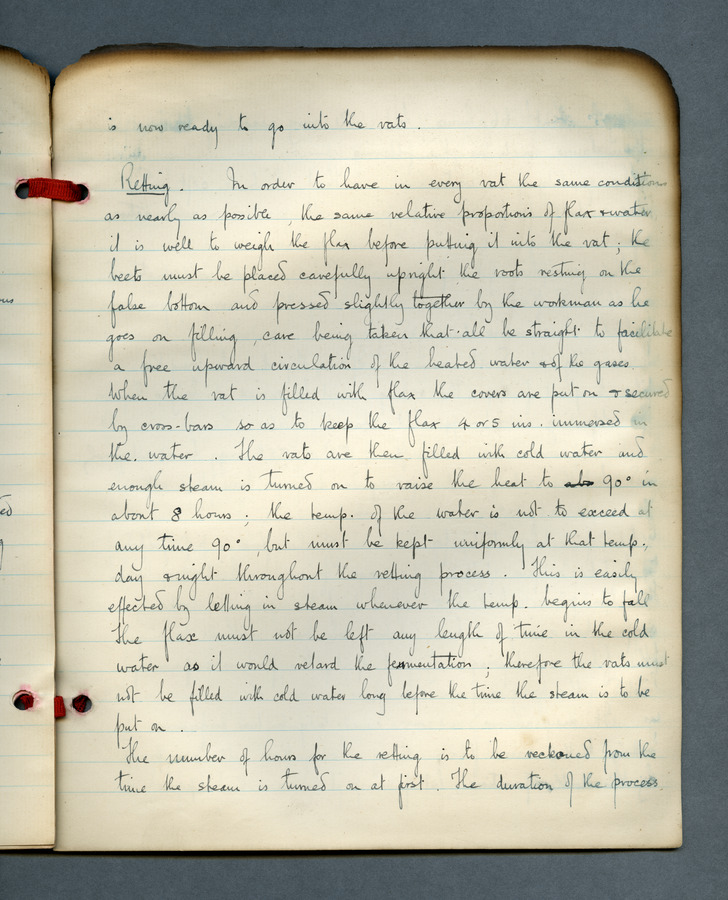 is now ready to go into the vats.
Retting. In order to have in every vat the same conditions
as nearly as possible, the same relative proportions of flax & water
it is well to weigh the flax before putting it into the vat; the
beets must be placed carefully upright the roots resting on the
false bottom and pressed slightly together by the workman as he
goes on filling, care being taken that all be straight to facilitate
a free upward circulation of the heated water & of the gases.
When the vat is filled with flax the covers are put on & secured
by cross-bars so as to keep the flax 4 or 5 ins. immersed in
the water. The vats are then filled with cold water and
enough steam is turned on to raise the heat to 90° in
about 8 hours; the temp. of the water is not to exceed at
any time 90°, but must be kept uniformly at that temp.,
day & night throughout the retting process. This is easily
effected by letting in steam whenever the temp. begins to fall
The flax must not be left any length of time in the cold
water as it would retard the fermentation; therefore the vats must
not be filled with cold water long before the time the steam is to be
put on.
The number of hours for the retting is to be reckoned from the
time the steam is turned on at first. The duration of the process